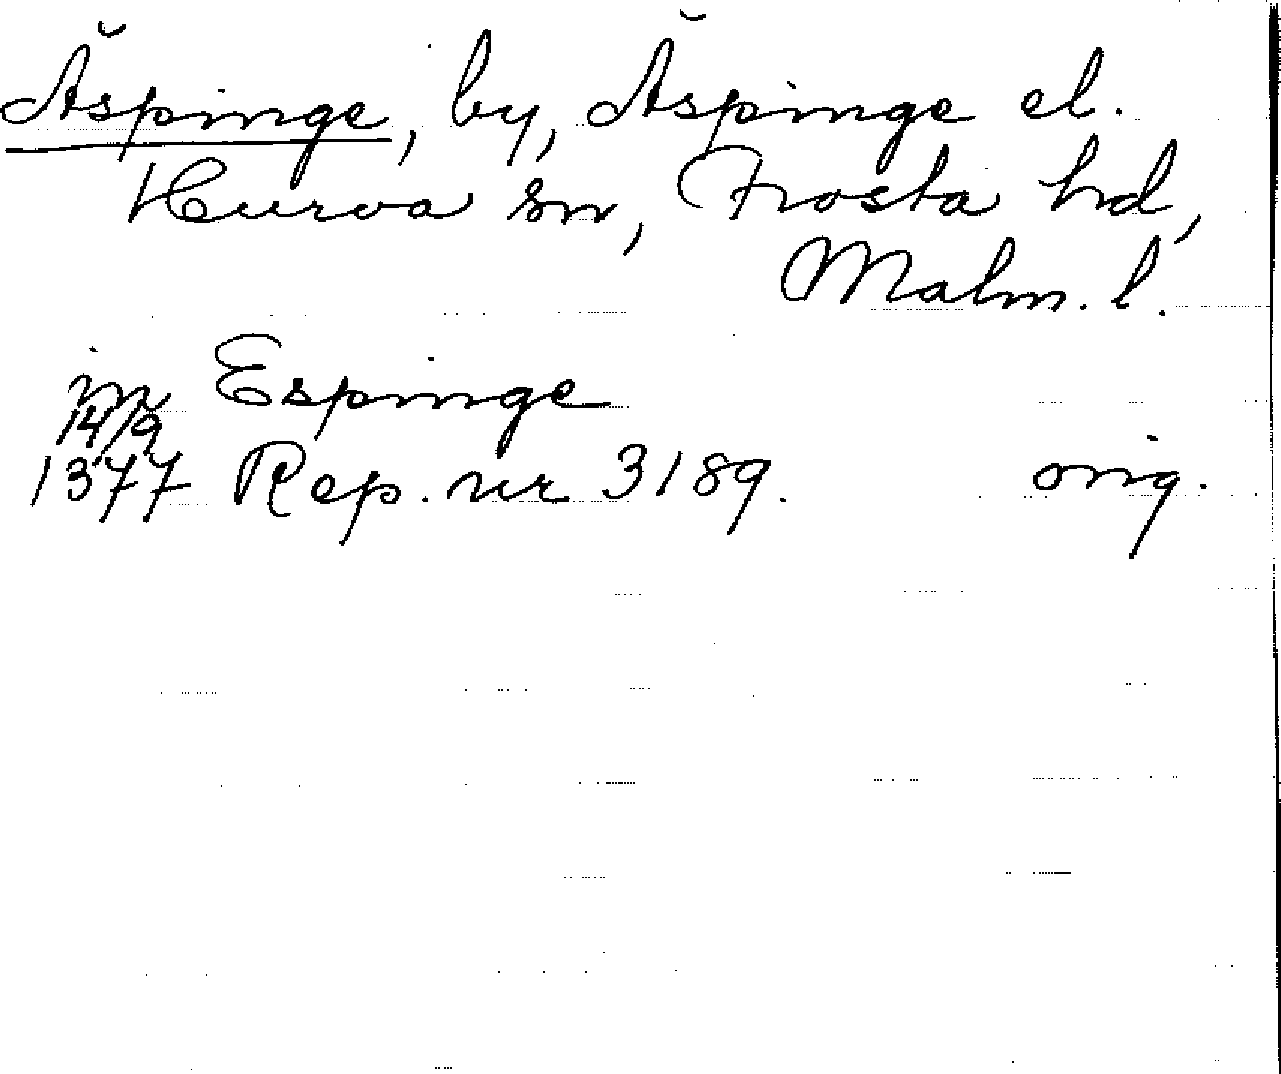 Äspinge, by, Äspinge el.
Hurva sn, Frosta hd,
Malm. l.
in Espinge
14/9
1377 Rep. nr 3189. orig.